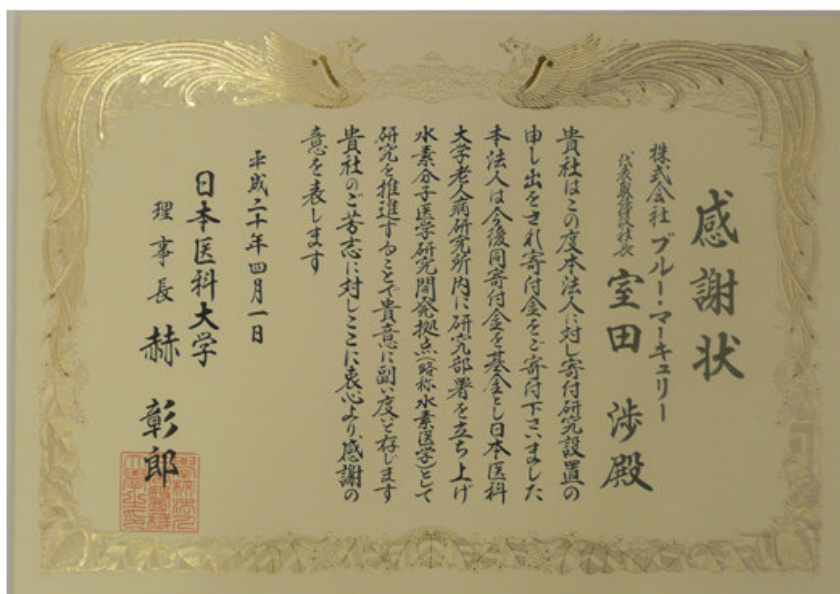 感謝状
株式会社 ブルー・マーキュリー
代表取締役社長 室田 渉殿
貴社はこの度本法人に対し寄付研究設置の
申し出をされ寄付金をご寄付下さいました
本法人は今後同寄付金を基金とし日本医科
大学老人病研究所内に研究部署を立ち上げ
水素分子医学研究開発拠点(略称水素医学)として
研究を推進することで貴意に副い度いと存じます
貴社のご芳志に対しここに衷心より感謝の
意を表します
平成二十年四月一日
日本医科大学
理事長 赫 彰郎